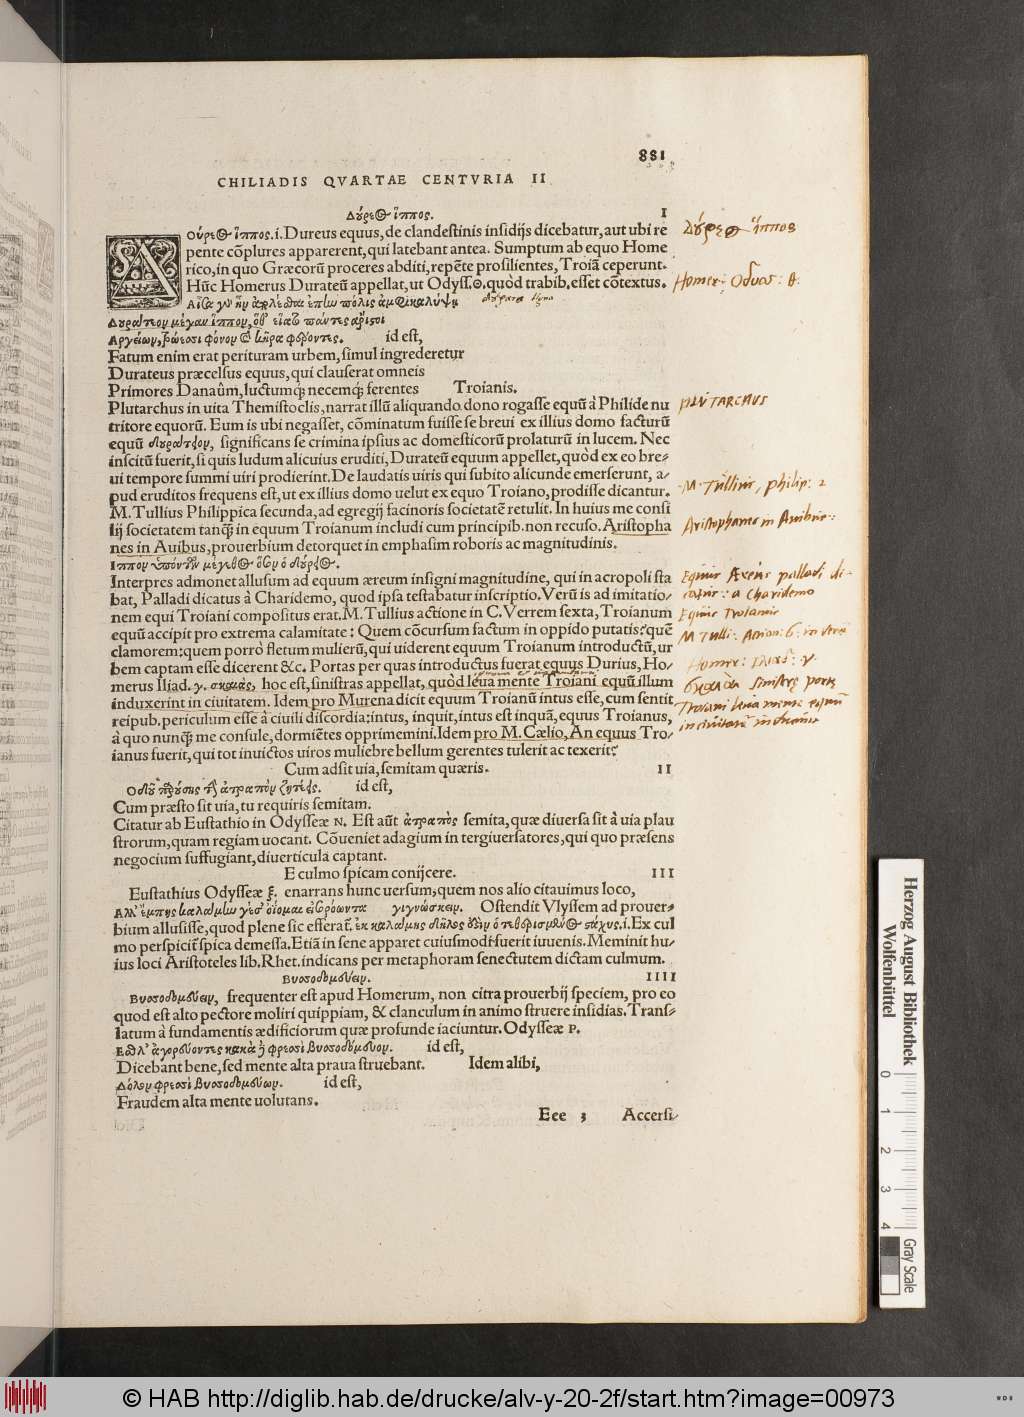 881
CHILIADIS QVARTAE CENTVRIA II
Δούρειος ἵππος. I
Δούρειος ἵππος .i. Dureus equus, de clandestinis insidijs dicebatur, aut ubi re
pente cōplures apparerent, qui latebant antea. Sumptum ab equo Home
rico, in quo Græcorū proceres abditi, repēte prosilientes, Troiā ceperunt.
Hūc Homerus Durateū appellat, ut Odyss. θ. quòd trabib. esset cōtextus.
Αἶσα γὰρ ἦν ἀπολέσθαι ἐπὴν πόλις ἀμφικαλύψῃ
Δουράτεον μέγαν ἵππον, ὅθ᾽ εἵατο πάντες ἄριστοι
Ἀργείων, τρώεσσι φόνον καὶ κῆρα φέροντες. id est,
Fatum enim erat perituram urbem, simul ingrederetur
Durateus præcelsus equus, qui clauserat omneis
Primores Danaûm, luctumq; necemq; ferentes Troianis.
Plutarchus in uita Themistoclis, narrat illū aliquando dono rogasse equū à Philide nu
tritore equorū. Eum is ubi negasset, cōminatum fuisse se breui ex illius domo facturū
equū δουράτεον, significans se crimina ipsius ac domesticorū prolaturū in lucem. Nec
inscitū fuerit, si quis ludum alicuius eruditi, Durateū equum appellet, quòd ex eo bre-
ui tempore summi uiri prodierint. De laudatis uiris qui subito alicunde emerserunt, a-
pud eruditos frequens est, ut ex illius domo uelut ex equo Troiano, prodisse dicantur.
M. Tullius Philippica secunda, ad egregij facinoris societatē retulit. In huius me consi
lij societatem tanq̃ in equum Troianum includi cum principib. non recuso. Aristopha
nes in Auibus, prouerbium detorquet in emphasim roboris ac magnitudinis.
Ἵππων ὑπόντων μέγεθος ὅσον ὁ δούριος.
Interpres admonet allusum ad equum æreum insigni magnitudine, qui in acropoli sta
bat, Palladi dicatus à Charidemo, quod ipsa testabatur inscriptio. Verū is ad imitatio-
nem equi Troiani compositus erat. M. Tullius actione in C. Verrem sexta, Troianum
equū accipit pro extrema calamitate: Quem cōcursum factum in oppido putatis? quē
clamorem: quem porrò fletum mulierū, qui uiderent equum Troianum introductū, ur
bem captam esse dicerent &c. Portas per quas introductus fuerat equus Durius, Ho-
merus Iliad. γ. σκαιὰς, hoc est, sinistras appellat, quòd leua mente Troiani equū illum
induxerint in ciuitatem. Idem pro Murena dicit equum Troianū intus esse, cum sentit
reipub. periculum esse à ciuili discordia: intus, inquit, intus est inquā, equus Troianus,
à quo nunq̃ me consule, dormiētes opprimemini. Idem pro M. Cælio, An equus Tro-
ianus fuerit, qui tot inuictos uiros muliebre bellum gerentes tulerit ac texerit?
Cum adsit uia, semitam quæris. II
Ὁδοῦ παρούσης τὴν ἀτραπὸν ζητεῖς. id est,
Cum præsto sit uia, tu requiris semitam.
Citatur ab Eustathio in Odysseæ N. Est aūt ἀτραπὸς semita, quæ diuersa sit à uia plau
strorum, quam regiam uocant. Cōueniet adagium in tergiuersatores, qui quo præsens
negocium suffugiant, diuerticula captant.
E culmo spicam conijcere. III
Eustathius Odysseæ ξ. enarrans hunc uersum, quem nos alio citauimus loco,
Ἀλλ᾽ ἔμπης καλάμην γέ σ᾽ ὀΐομαι εἰσορόωντα γιγνώσκειν. Ostendit Vlyssem ad prouer-
bium allusisse, quod plene sic efferat̃. ἐκ καλάμης δῆλος .i. Ex cul
mo perspicit̃ spica demessa. Etiā in sene apparet cuiusmodi fuerit iuuenis. Meminit hu-
ius loci Aristoteles lib. Rhet. indicans per metaphoram senectutem dictam culmum.
Βυσσοδομεύειν. IIII
Βυσσοδομεύειν, frequenter est apud Homerum, non citra prouerbij speciem, pro eo
quod est alto pectore moliri quippiam, & clanculum in animo struere insidias. Trans-
latum à fundamentis ædificiorum quæ profunde iaciuntur. Odysseæ P.
Ἐσθλ᾽ ἀγορεύοντες κακὰ δὲ φρεσὶ βυσσοδόμευον. id est,
Dicebant bene, sed mente alta praua struebant. Idem alibi,
Δόλον φρεσὶ βυσσοδομεύων. id est,
Fraudem alta mente uolutans.
Eee 3 Accersi-
Δούρειος ἵππος
Homer: Odyss: θ.
PLVTARCHVS
M. Tullius, philip: 2
Aristophanes in Auibus:
Equus Æreus palladi di-
catur: a Charidemo
Equus Troianus
M Tulli: Action: 6. in Verrē
Homer: Iliad: γ.
sinistræ portæ
Troiani leua mente equum
in ciuitatē induxerūt
Herzog August Bibliothek
Wolfenbüttel
0 1 2 3 4
Gray Scale
© HAB http://diglib.hab.de/drucke/alv-y-20-2f/start.htm?image=00973